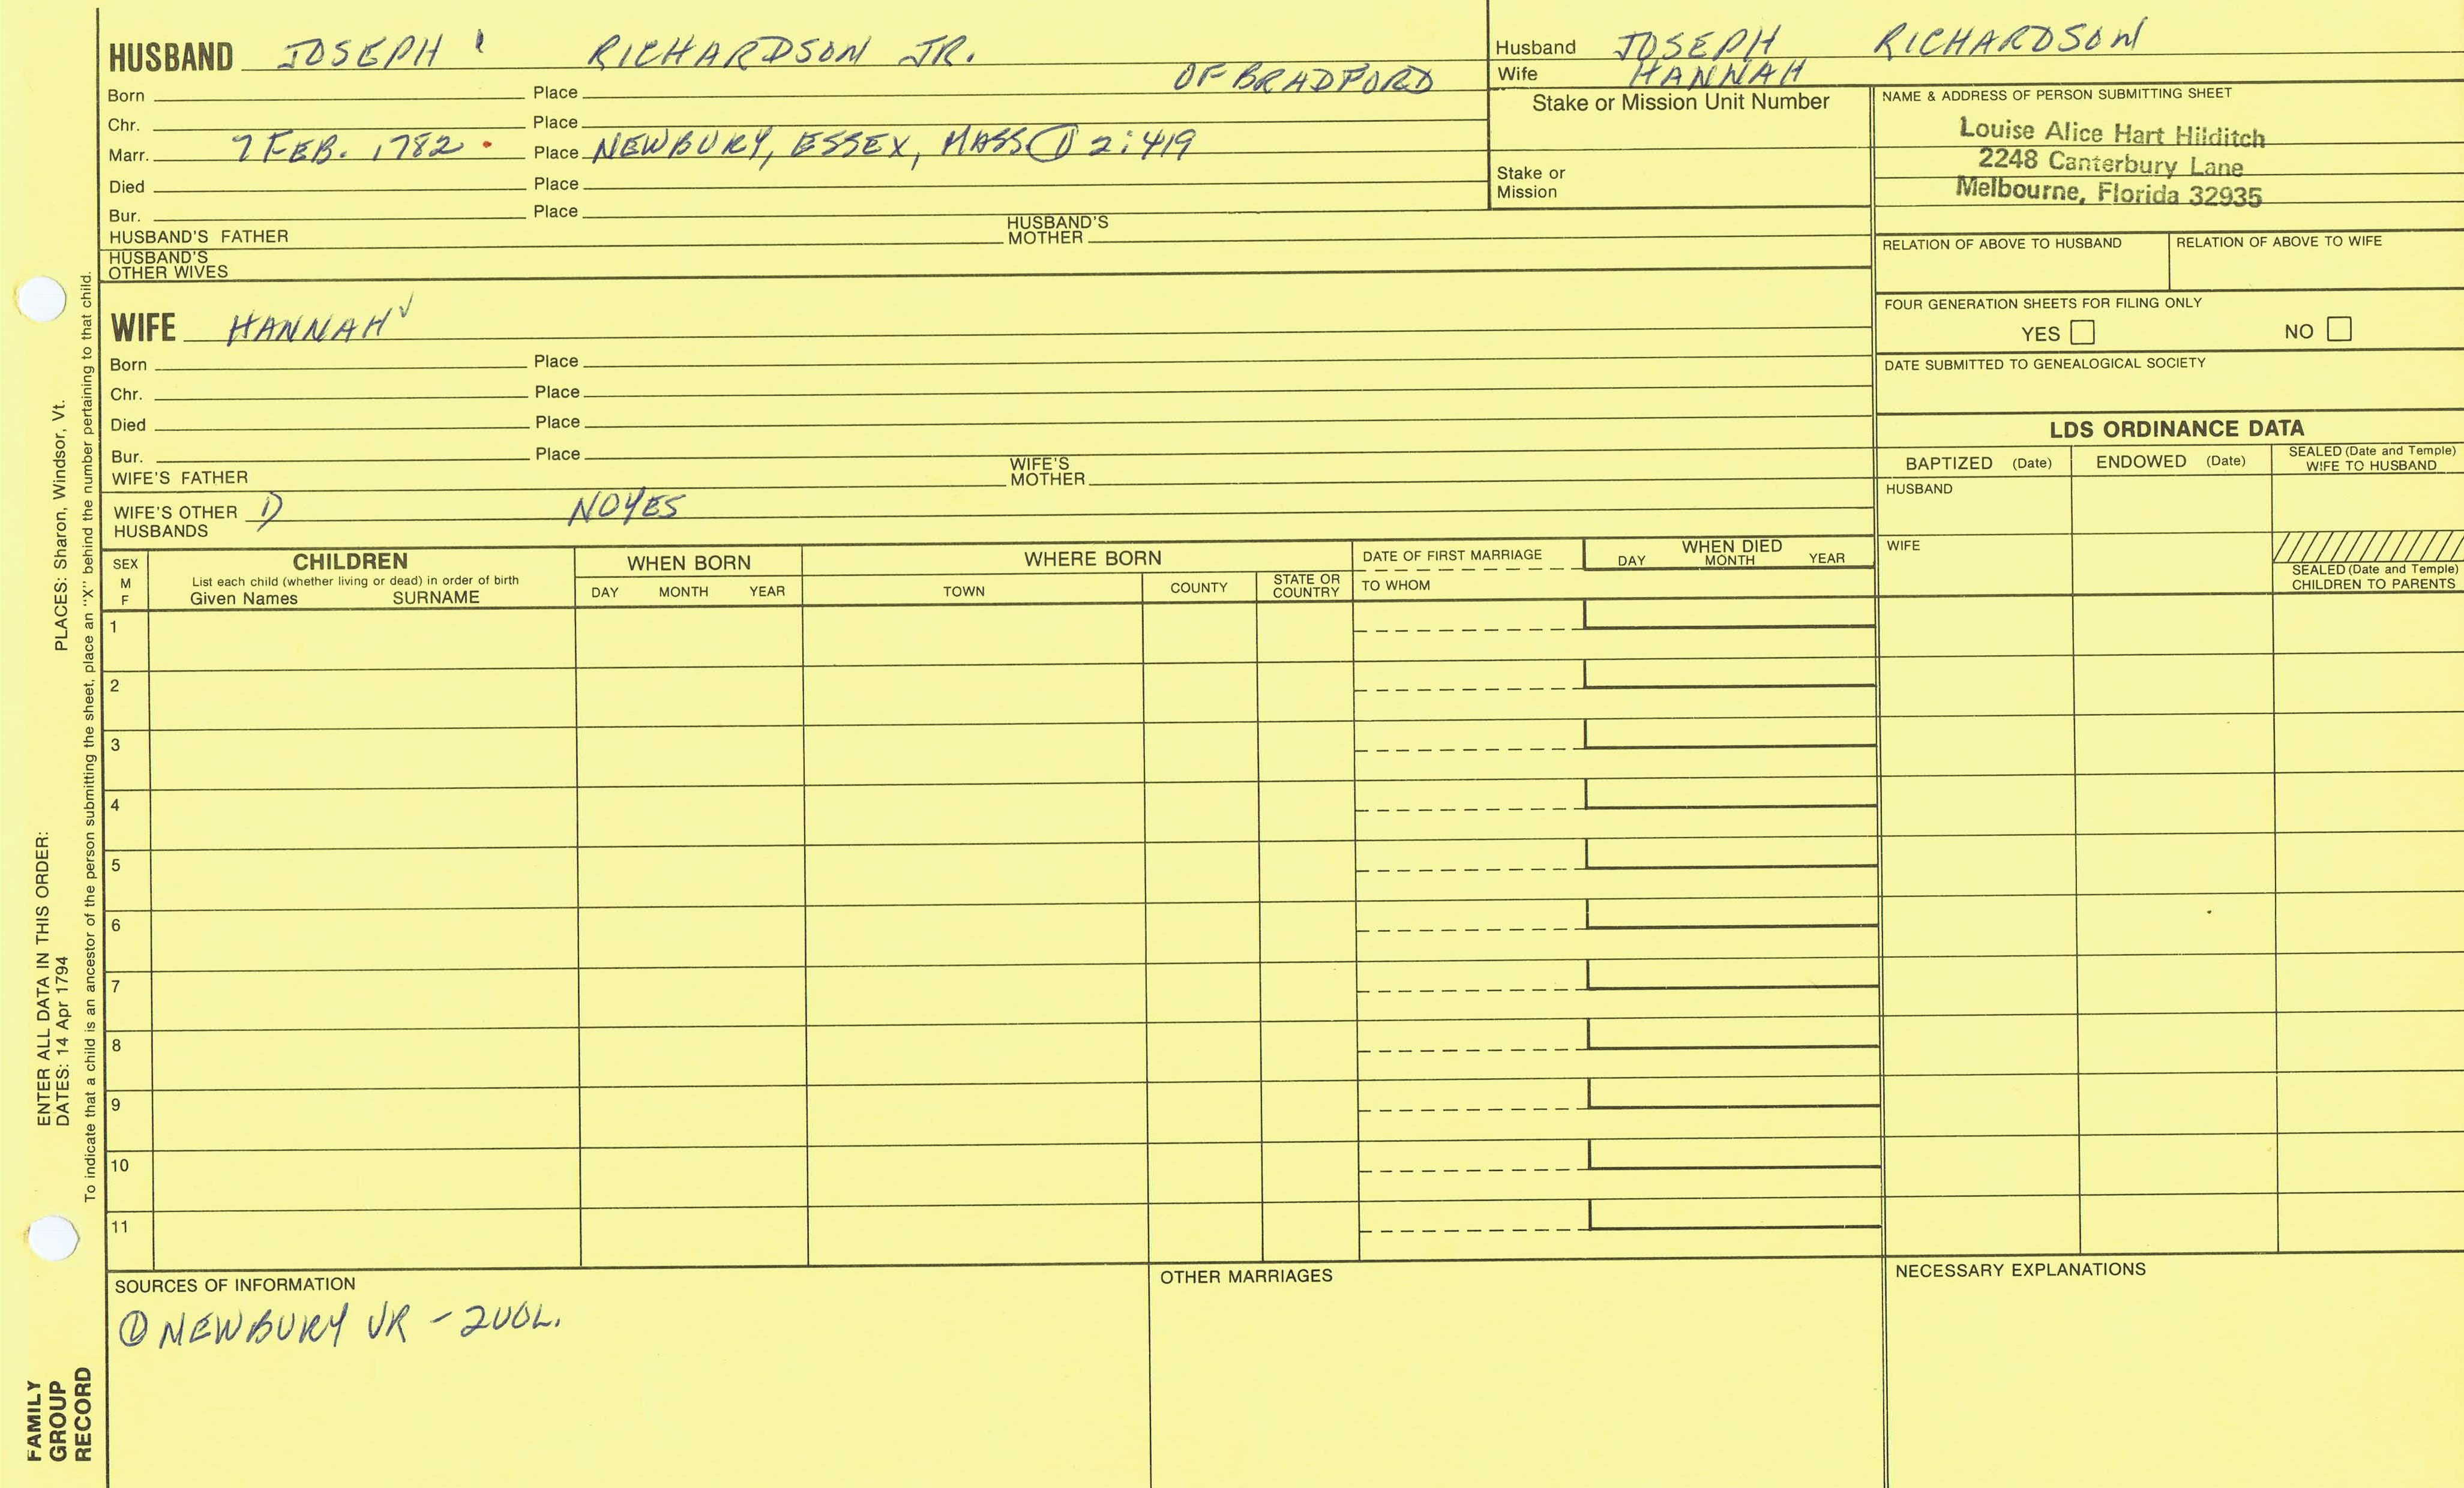 HUSBAND JOSEPH RICHARDSON JR.
OF BRADFORD
Born Place
Chr. Place
Marr. 7 FEB. 1782 . Place NEWBURY, ESSEX, MASS ① 2:419
Died Place
Bur. Place
HUSBAND'S FATHER HUSBAND'S MOTHER
HUSBAND'S OTHER WIVES
WIFE HANNAH ✓
Born Place
Chr. Place
Died Place
Bur. Place
WIFE'S FATHER WIFE'S MOTHER
WIFE'S OTHER HUSBANDS 1) NOYES
Husband JOSEPH RICHARDSON
Wife HANNAH
Stake or Mission Unit Number
Stake or
Mission
NAME & ADDRESS OF PERSON SUBMITTING SHEET
Louise Alice Hart Hilditch
2248 Canterbury Lane
Melbourne, Florida 32935
RELATION OF ABOVE TO HUSBAND RELATION OF ABOVE TO WIFE
FOUR GENERATION SHEETS FOR FILING ONLY
YES NO
DATE SUBMITTED TO GENEALOGICAL SOCIETY
LDS ORDINANCE DATA
BAPTIZED (Date) ENDOWED (Date) SEALED (Date and Temple) WIFE TO HUSBAND
HUSBAND
WIFE
SEALED (Date and Temple)
CHILDREN TO PARENTS
SEX
M
F
CHILDREN
List each child (whether living or dead) in order of birth
Given Names SURNAME
WHEN BORN
DAY MONTH YEAR
WHERE BORN
TOWN COUNTY STATE OR COUNTRY
DATE OF FIRST MARRIAGE
TO WHOM
WHEN DIED
DAY MONTH YEAR
1
2
3
4
5
6
7
8
9
10
11
SOURCES OF INFORMATION
① NEWBURY VR - 2 VOL.
OTHER MARRIAGES
NECESSARY EXPLANATIONS
PLACES: Sharon, Windsor, Vt.
ENTER ALL DATA IN THIS ORDER:
DATES: 14 Apr 1794
To indicate that a child is an ancestor of the person submitting the sheet, place an "X" behind the number pertaining to that child.
FAMILY
GROUP
RECORD